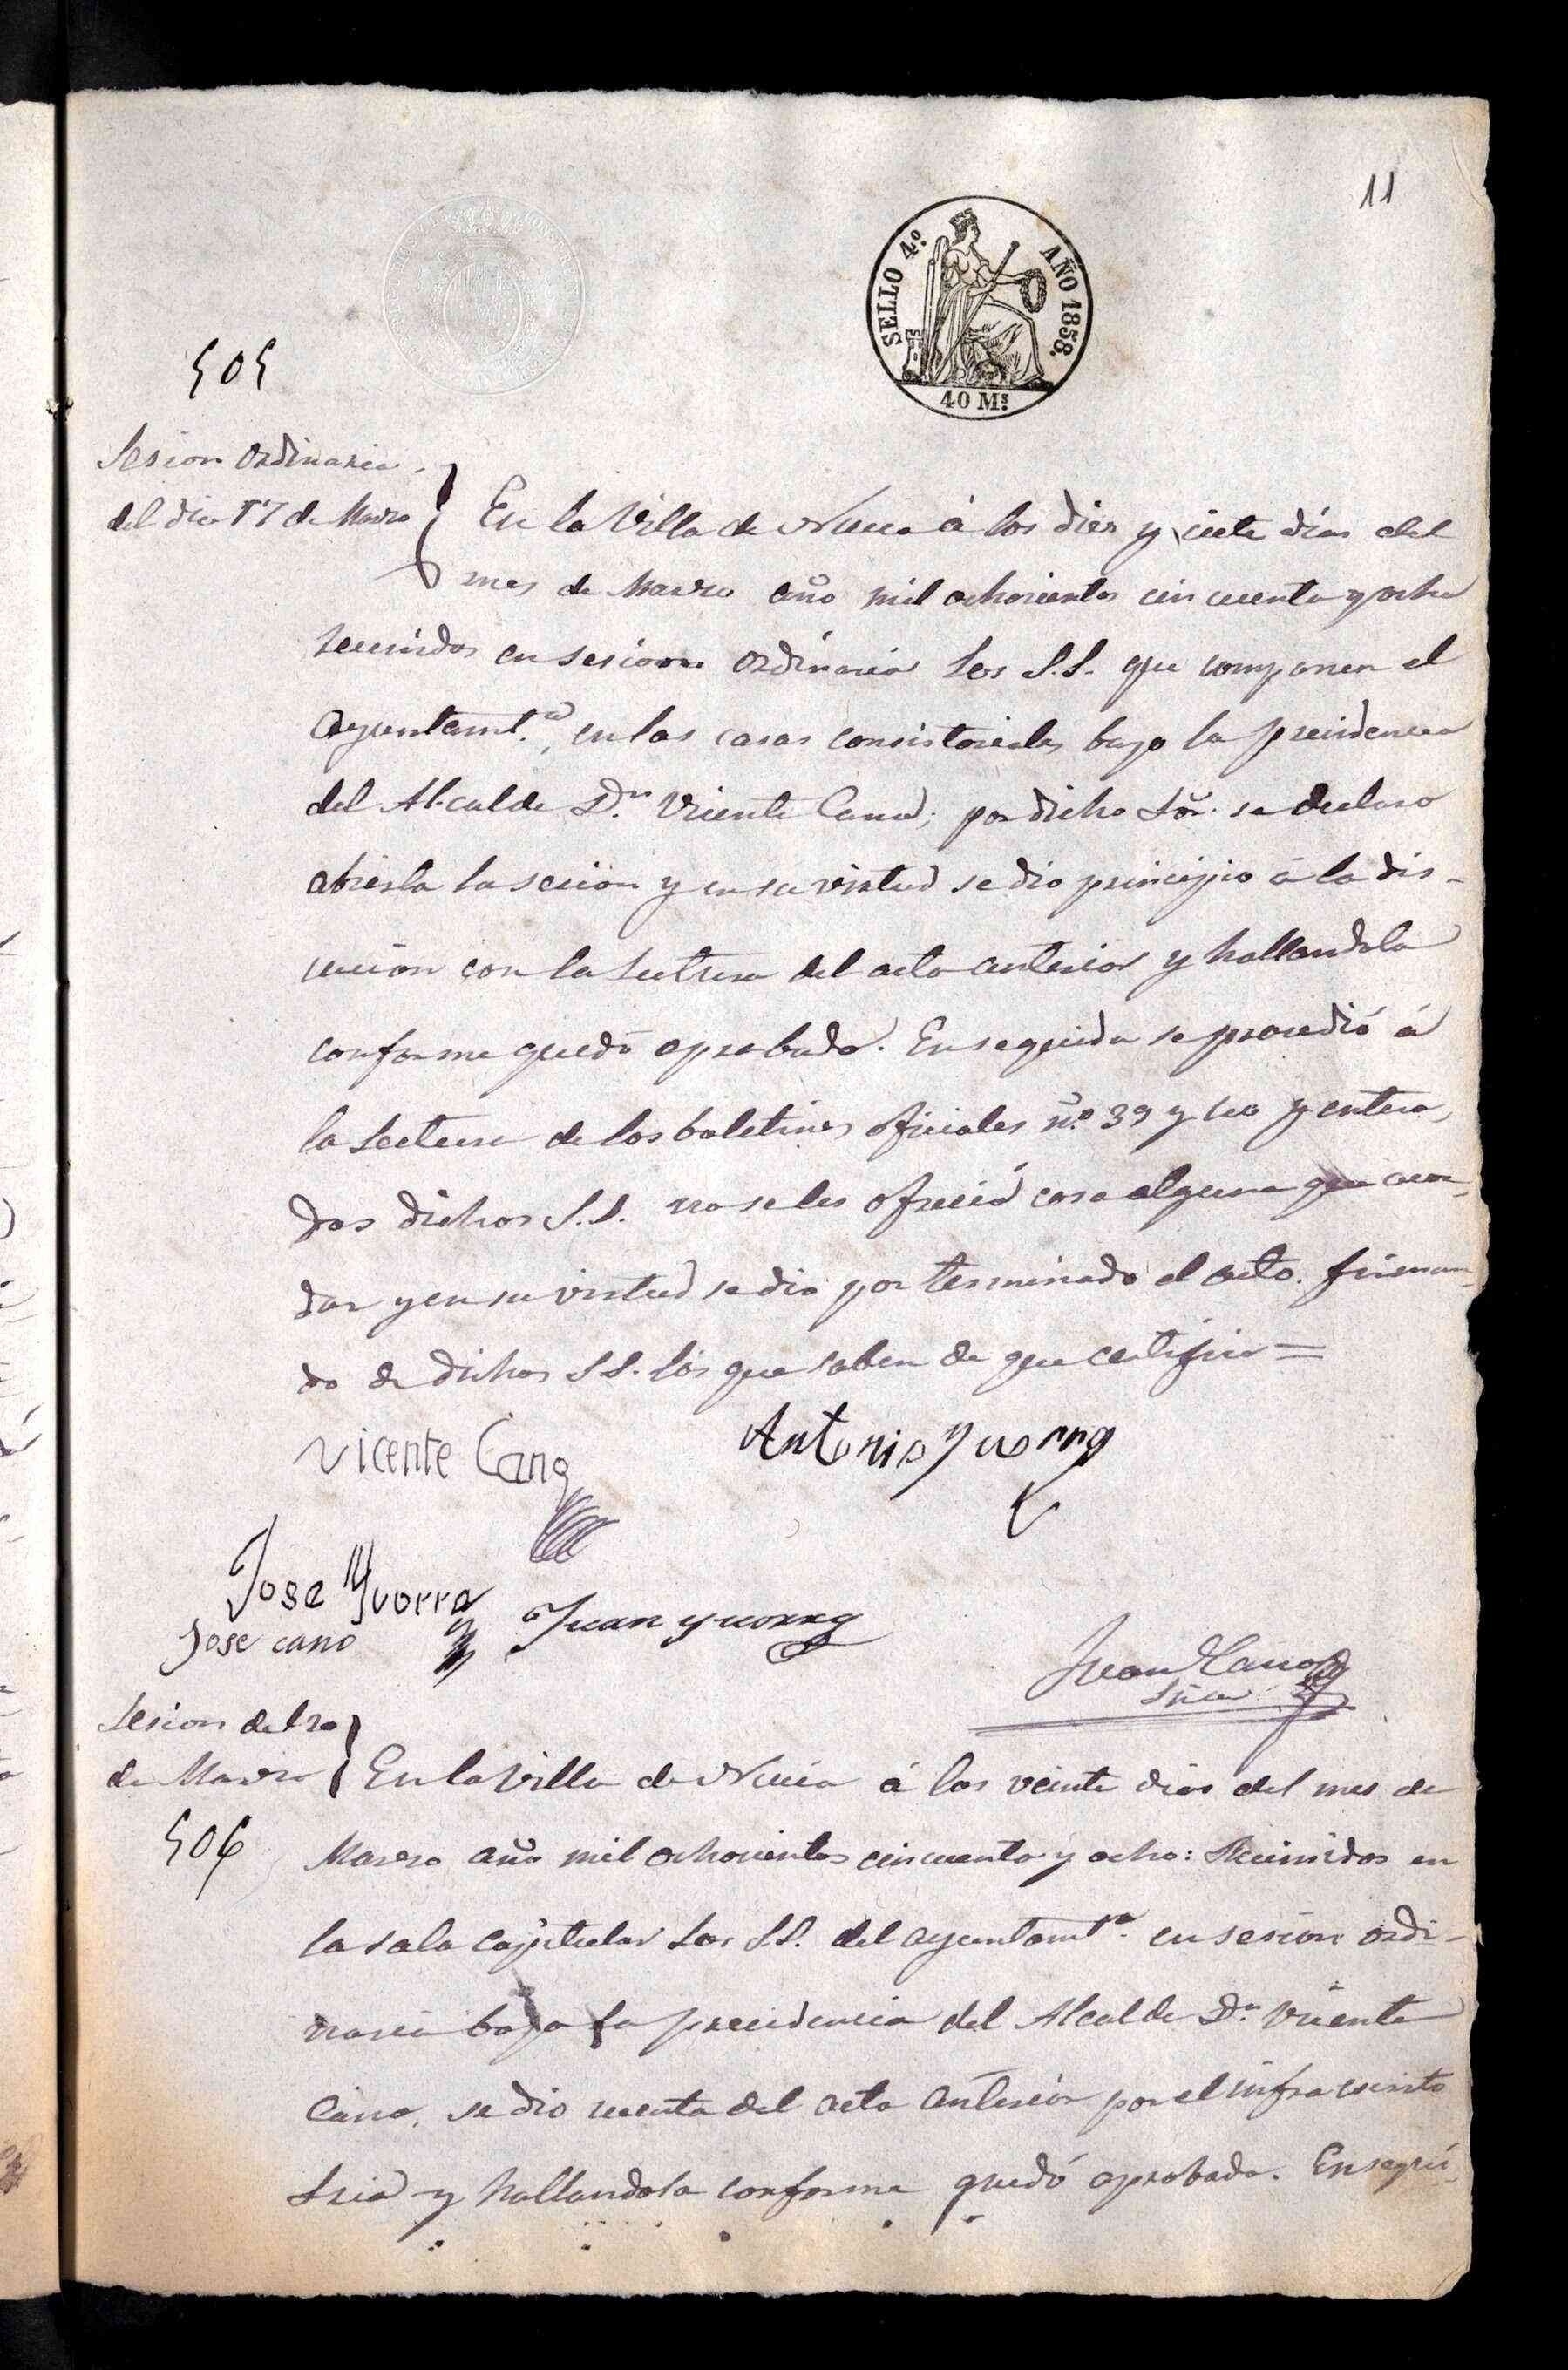 11
SELLO 4.º AÑO 1858.
40 Ms.
505
Sesion ordinaria
del dia 17 de Marzo
En la Villa de Nucia á los diez y siete dias del
mes de Marzo año mil ochocientos cincuenta y ocho
reunidos en sesion ordinaria los S.S. que componen el
Ayuntamt.º en las casas consistoriales bajo la precidencia
del Alcalde Dn. Vicente Cano; por dicho Sor. se declaro
abierta la secion y en su virtud se dio principio á la dis-
cucion con la lectura del acta anterior y hallandola
conforme quedó aprobada. En seguida se procedió á
la lectura de los boletines oficiales nº 39 y y entera,
dos dichos S.S. no se les ofreció cosa alguna que acor,
dar y en su virtud se dio por terminado el acto. firman
do de dichos S.S. los que saben de que certifico=
Vicente Cano
Antonio Yvorra
Jose Yvorra
Jose cano
Juan yvorra
Juan Cano
Srio
Sesion del 20
de Marzo
506
En la Villa de Nucia á los veinte dias del mes de
Marzo año mil ochocientos cincuenta y ocho: Reunidos en
la sala capitular los S.S. del ayuntamtº. en sesion ordi-
naria bajo la precidencia del Alcalde Dn. Vicente
Cano, se dio cuenta del acta anterior por el infrascrito
Srio y hallandola conforme quedó aprobada. En segui-